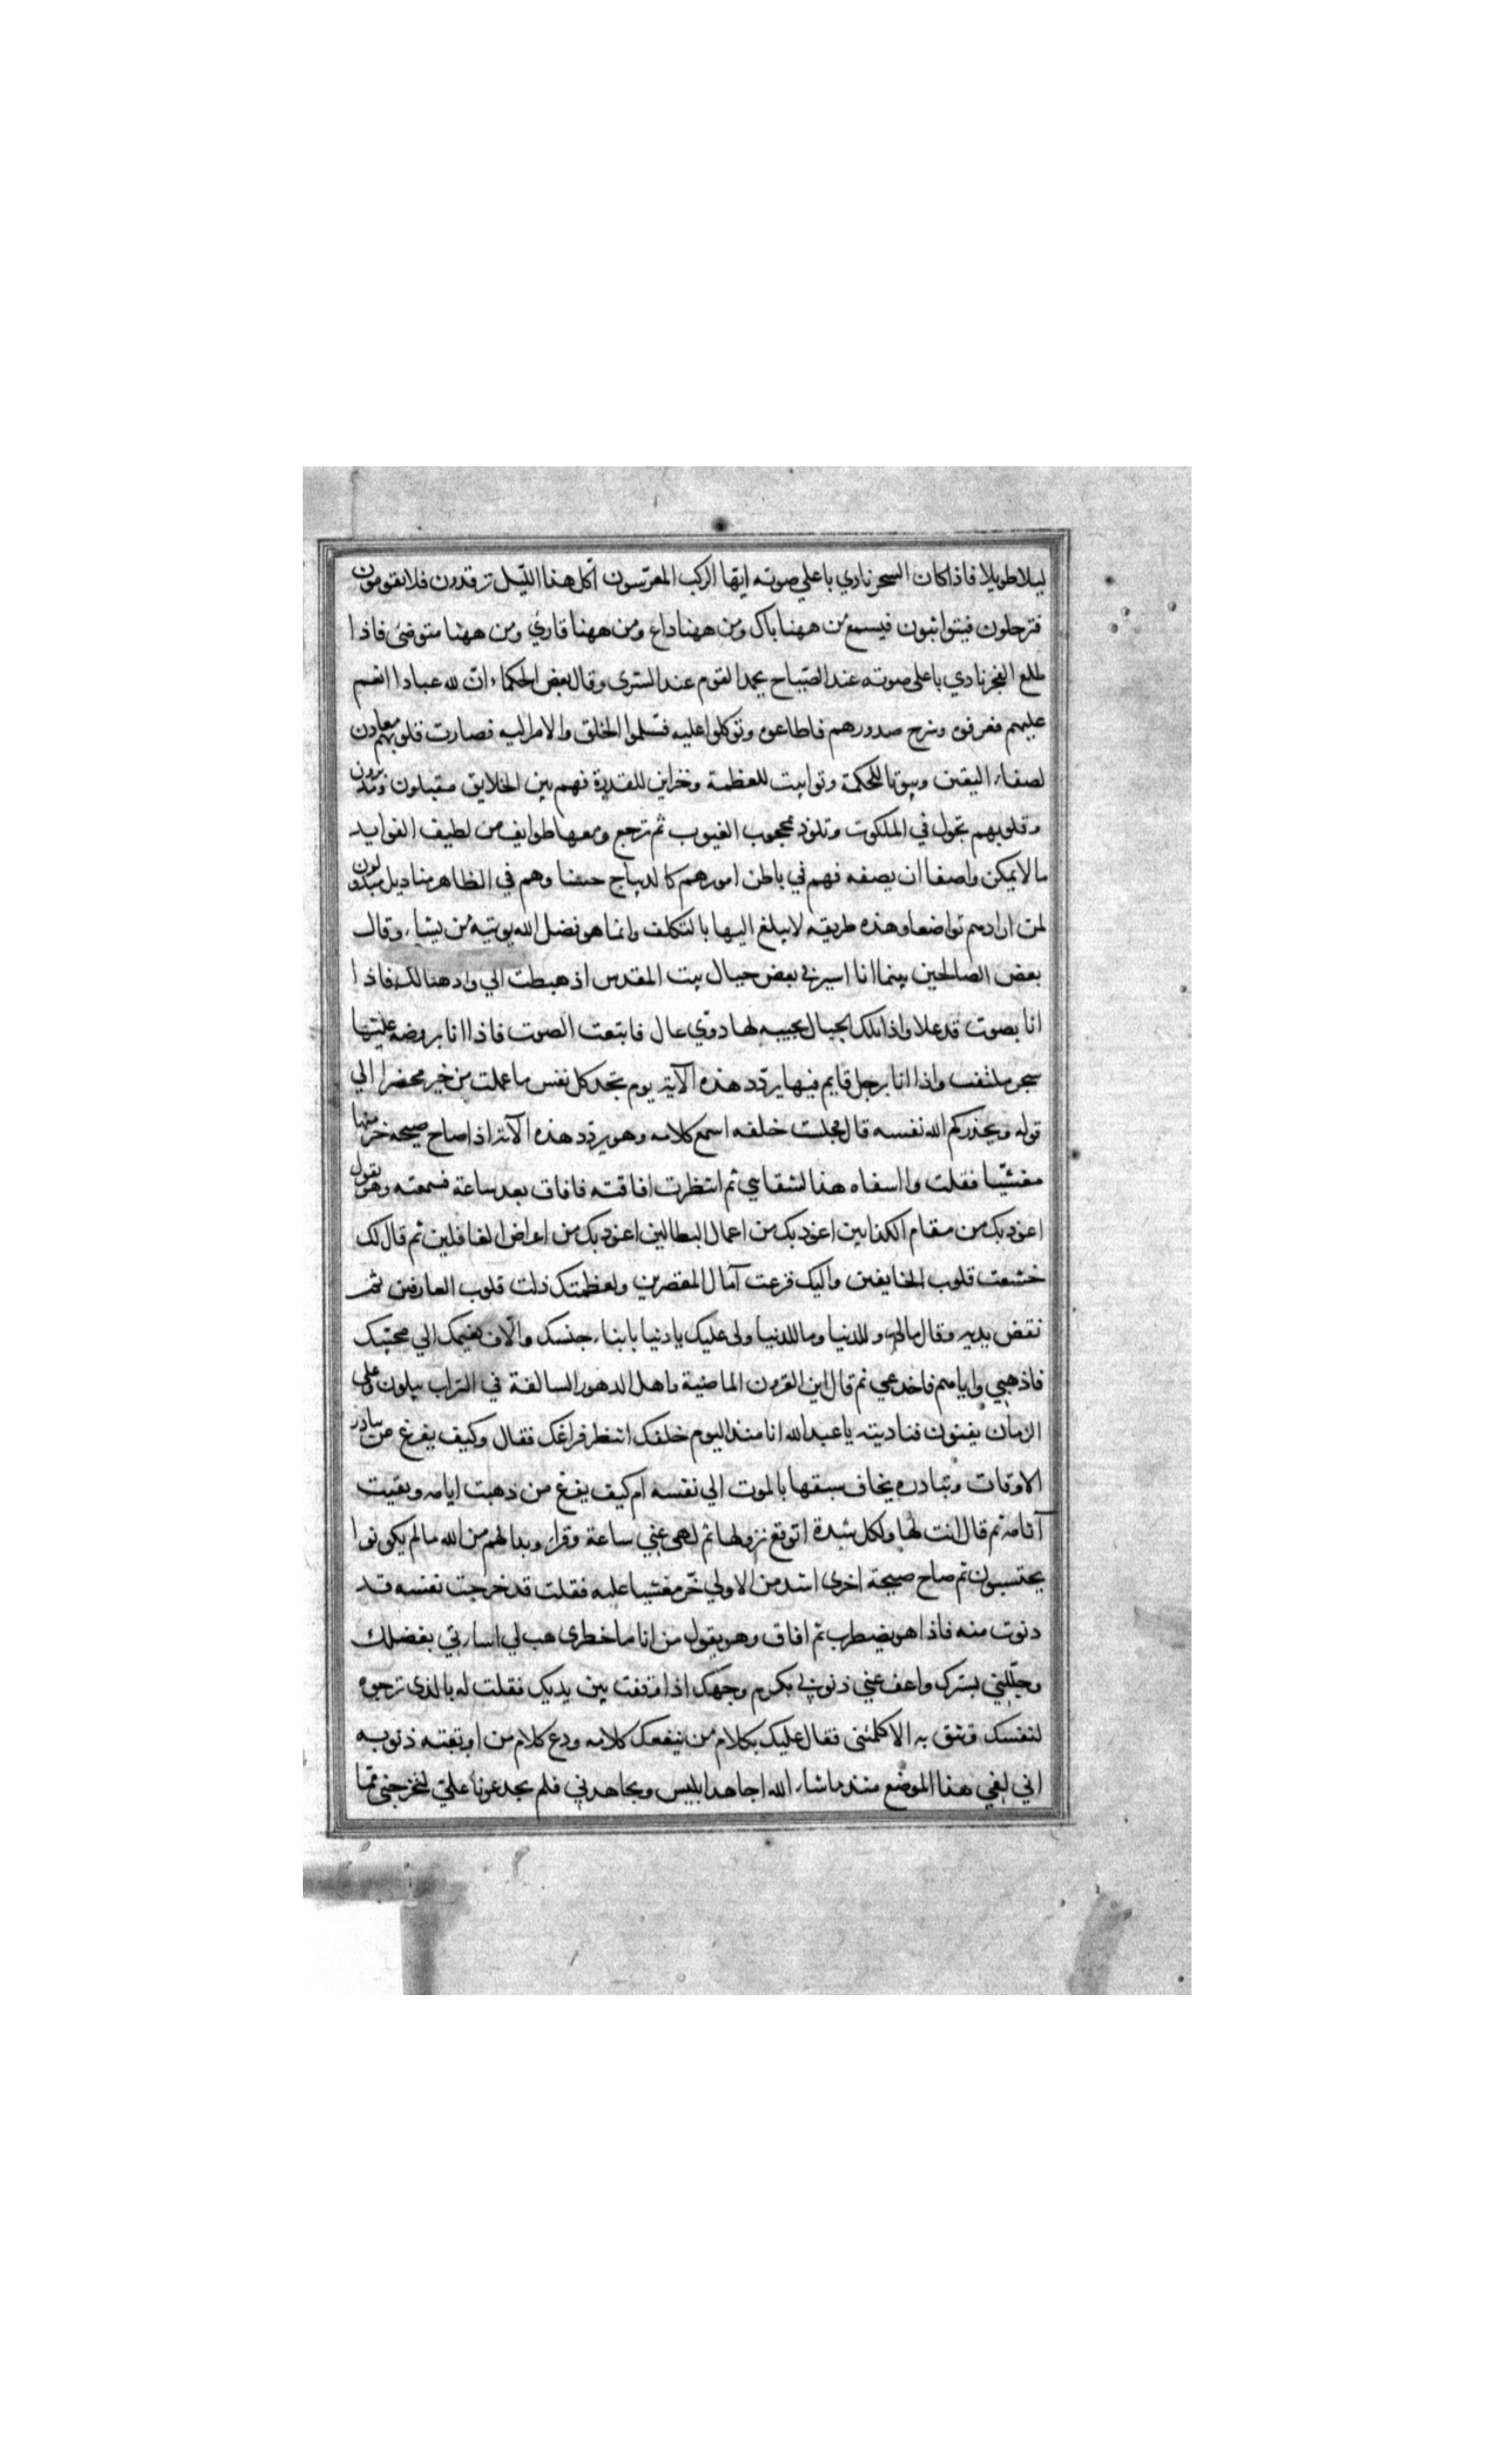 ليلا طويلا فاذا كان السحر نادي باعلي صوته ايها الركب المعرّسون اكل هذا الليل ترقدون فلا تقومون
فترحلون فيتواثبون فيسمع من ههنا باك ومن ههنا داع ومن ههنا قارئ ومن ههنا متوضئ فاذا
طلع الفجر نادي باعلي صوته عند الصّباح يحمد القوم عند السّرى وقال بعض الحكماء انّ لله عبادا انعم
عليهم فعرفوه وشرح صدورهم فاطاعوه وتوكلوا عليه فسّلموا الخلق والامر اليه فصارت قلوبهم معادن
لصفاء اليقين وبيوتا للحكمة وتوابيت للعظمة وخزاين للقدرة فهم بين الخلايق مقبلون ومدبرون
وقلوبهم تجول في الملكوت وتلوذ بمحجوب الغيوب ثم ترجع ومعها طوايف من لطيف الفوايد
ما لا يمكن واصفا ان يصفه فهم في باطن امورهم كالديباج حسنا وهم في الظاهر مناديل مبذولون
لمن ارادهم تواضعا وهذه طريقه لا يبلغ اليها بالتكلف وانما هو فضل الله يوتيه من يشاء وقال
بعض الصالحين بينما انا اسير في بعض جبال بيت المقدس اذ هبطت الي واد هنالك فاذا
انا بصوت قد علا واذا تلك الجبال تجيبه لها دوّي عال فاتبعت الصوت فاذا انا بروضه عليها
شجر ملتف واذا انا برجل قايم فيها يردّد هذه الآية يوم تجد كل نفس ما عملت من خير محضرا الي
قوله ويحذركم الله نفسه قال فجلست خلفه اسمع كلامه وهو يردّد هذه الآية اذا صاح صيحه خر منها
مغشّيا فقلت وا اسفاه هذا لشقاءي ثم انتظرت افاقته فافاق بعد ساعة فسمعته وهو يقول
اعوذ بك من مقام الكذابين اعوذ بك من اعمال البطالين اعوذ بك من اعراض الغافلين ثم قال لك
خشعت قلوب الخايفين واليك فزعت آمال المقصرين ولعظمتك ذلت قلوب العارفين ثم
نفض يديه وقال مالي وللدنيا وما للدنيا ولي عليك يا دنيا بابناء جنسك والّاف نعيمك الي محبّيك
فاذهبي واياهم فاخدعي ثم قال اين القرون الماضية واهل الدهور السالفة في التراب يبلون وعلى
الزمان يفنون فناديته يا عبد الله انا منذ اليوم خلفك انتظر فراغك فقال وكيف يفرغ من يبادر
الاوقات وتبادره يخاف سبقها بالموت الي نفسه ام كيف يفرغ من ذهبت ايامه وبقيت
آثامه ثم قال انت لها ولكل شدة اتوقع نزولها ثم لهى عني ساعة وقرا وبدا لهم من الله ما لم يكونوا
يحتسبون ثم صاح صيحة اخرى اشد من الاولي خّر مغشيا عليه فقلت قد خرجت نفسه قد
دنوت منه فاذا هو يضطرب ثم افاق وهو يقول من انا ما خطرى هب لي اساءتي بفضلك
وجلّلني بسترك واعف عني ذنوبي بكرم وجهك اذا وقفت بين يديك فقلت له بالذى ترجوه
لنفسك وتثق به الا كلمتنى فقال عليك بكلام من ينفعك كلامه ودع كلام من اوبقته ذنوبه
اني لفي هذا الموضع منذ ما شاء الله اجاهد ابليس ويجاهدني فلم يجد عونا علىّ ليخرجنى ممّا